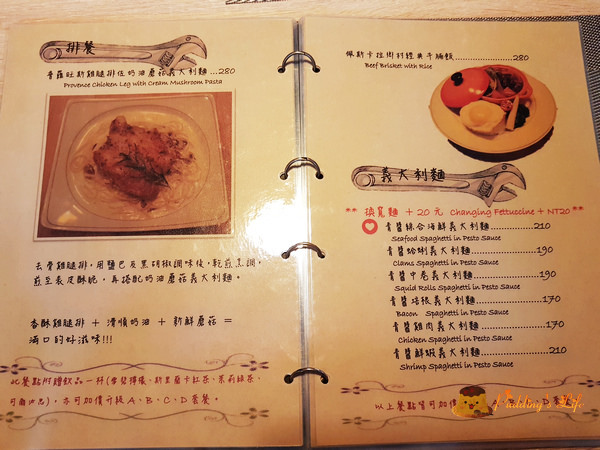 排餐
普羅旺斯雞腿排佐奶油蘑菇義大利麵...280
Provence Chicken Leg with Cream Mushroom Pasta
去骨雞腿排,用鹽巴及黑胡椒調味後,乾煎烹調,
煎至表皮酥脆,再搭配奶油蘑菇義大利麵。
香酥雞腿排 + 滑順奶油 + 新鮮蘑菇 =
滿口的好滋味!!!
此餐點附贈飲品一杯
亦可加價升級A、B、C、D套餐。
280
Beef Brisket with Rice
義大利麵
** 換寬麵 +20元 Changing Fettuccine + NT20 **
青醬綜合海鮮義大利麵...............210
Seafood Spaghetti in Pesto Sauce
青醬蛤蜊義大利麵...............190
Clams Spaghetti in Pesto Sauce
青醬中卷義大利麵...............190
Squid Rolls Spaghetti in Pesto Sauce
青醬培根義大利麵...............170
Bacon Spaghetti in Pesto Sauce
青醬雞肉義大利麵...............170
Chicken Spaghetti in Pesto Sauce
青醬鮮蝦義大利麵...............210
Shrimp Spaghetti in Pesto Sauce
以上餐點皆可加價
A、B、C、D套餐
Pudding's Life